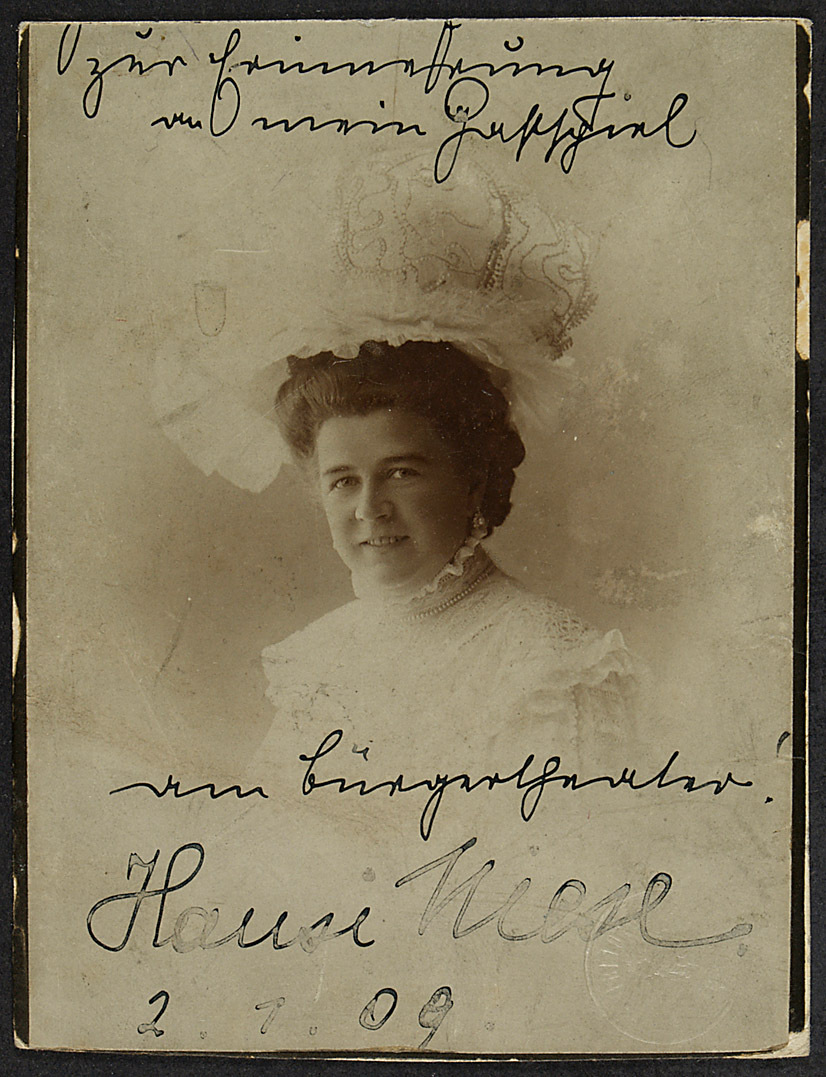 Zur Erinnerung
an mein Gastspiel
am Bürgertheater!
Hansi Niese
2. 1. 09.